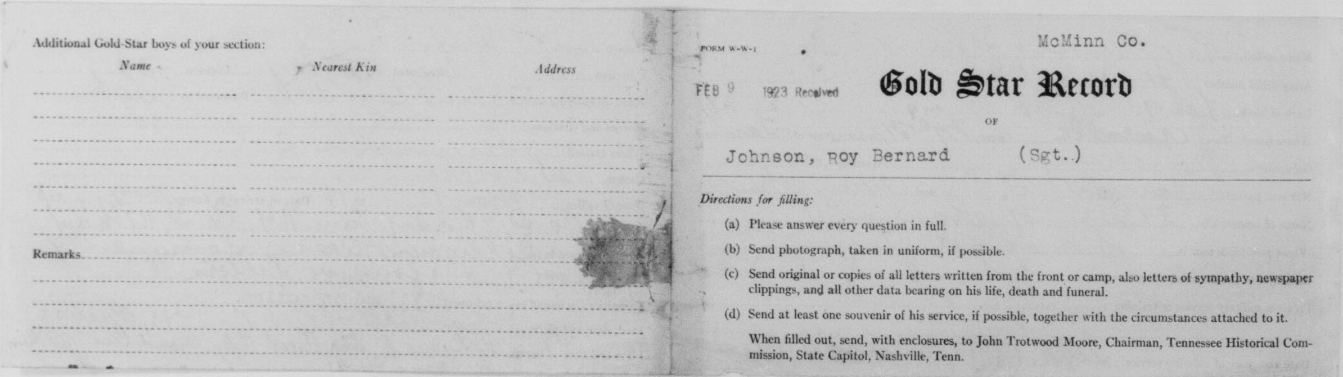 Additional Gold-Star boys of your section:
Name Nearest Kin Address
Remarks
FORM W-W-1
McMinn Co.
FEB 9 1923 Received
Gold Star Record
OF
Johnson, Roy Bernard (Sgt.)
Directions for filling:
(a) Please answer every question in full.
(b) Send photograph, taken in uniform, if possible.
(c) Send original or copies of all letters written from the front or camp, also letters of sympathy, newspaper
clippings, and all other data bearing on his life, death and funeral.
(d) Send at least one souvenir of his service, if possible, together with the circumstances attached to it.
When filled out, send, with enclosures, to John Trotwood Moore, Chairman, Tennessee Historical Com-
mission, State Capitol, Nashville, Tenn.